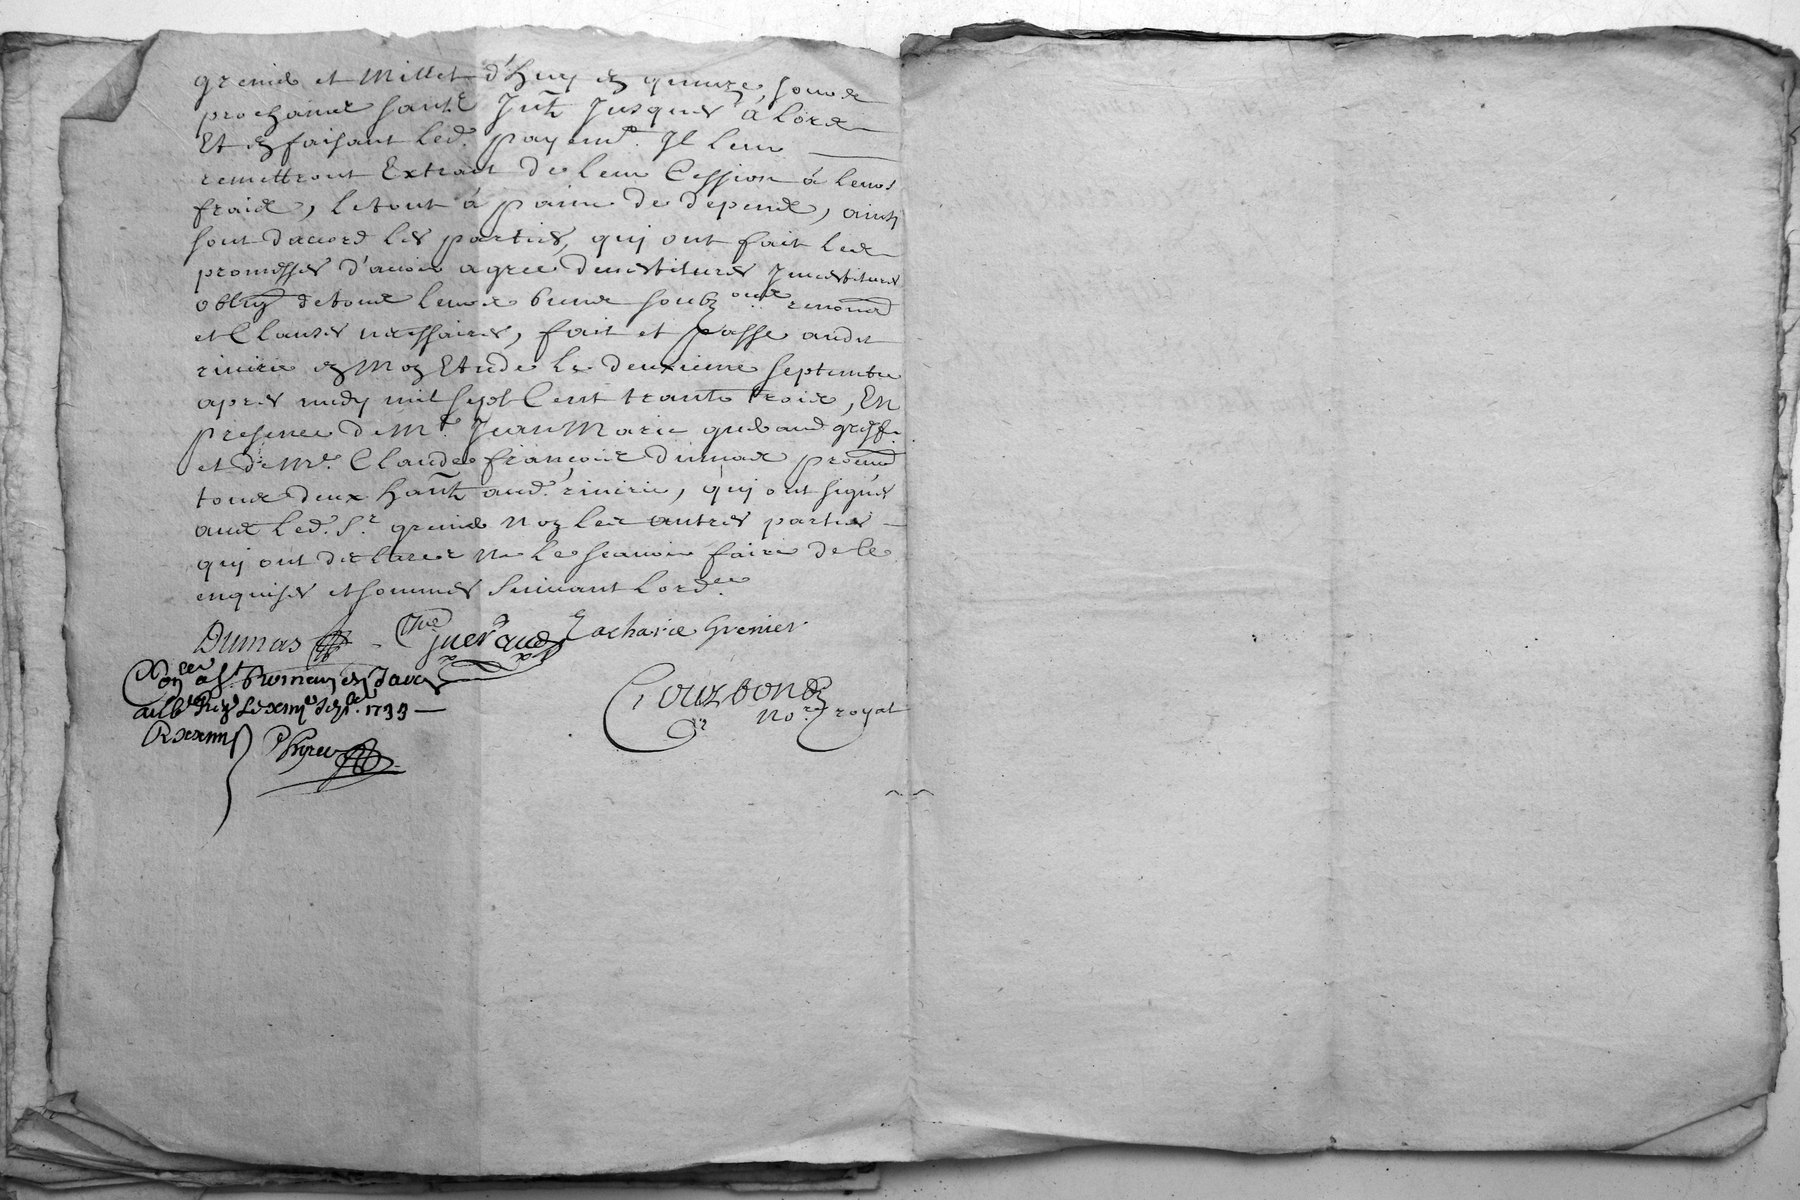 grenier et Millet d'huy en quinze jours
prochains sans Intt Jusques à lors
Et en faisant led. payemt. Il leur
remettront Extrait de leur Cession à leurs
frais, le tout à paine de depens, ainsy
sont d'accord les parties, qui ont fait les
promesses d'avoir agreé devestitures Jnvestitures
oblign de tous leurs biens soubz ... renond
et Clauses necessaires, fait et passé audit
riverie en Mon Etude le deuxieme septembre
apres midy mil sept Cent trante trois, En
presence de Mr. Jean Marie gueraud greff.
et de Mre. Claude françois dumas
tous deux hants aud. riverie, qui ont signés
avec led. Sr grenier non les autres parties
qui ont declarer ne le scavoir faire de ce
enquises et sommés suivant lord.ce
Dumas Gueraud Zacharie Grenier
Con.lé a St Romain en Jarez
au b. le xiii Sep.bre 1733
R
Crouzbon
No.re royal